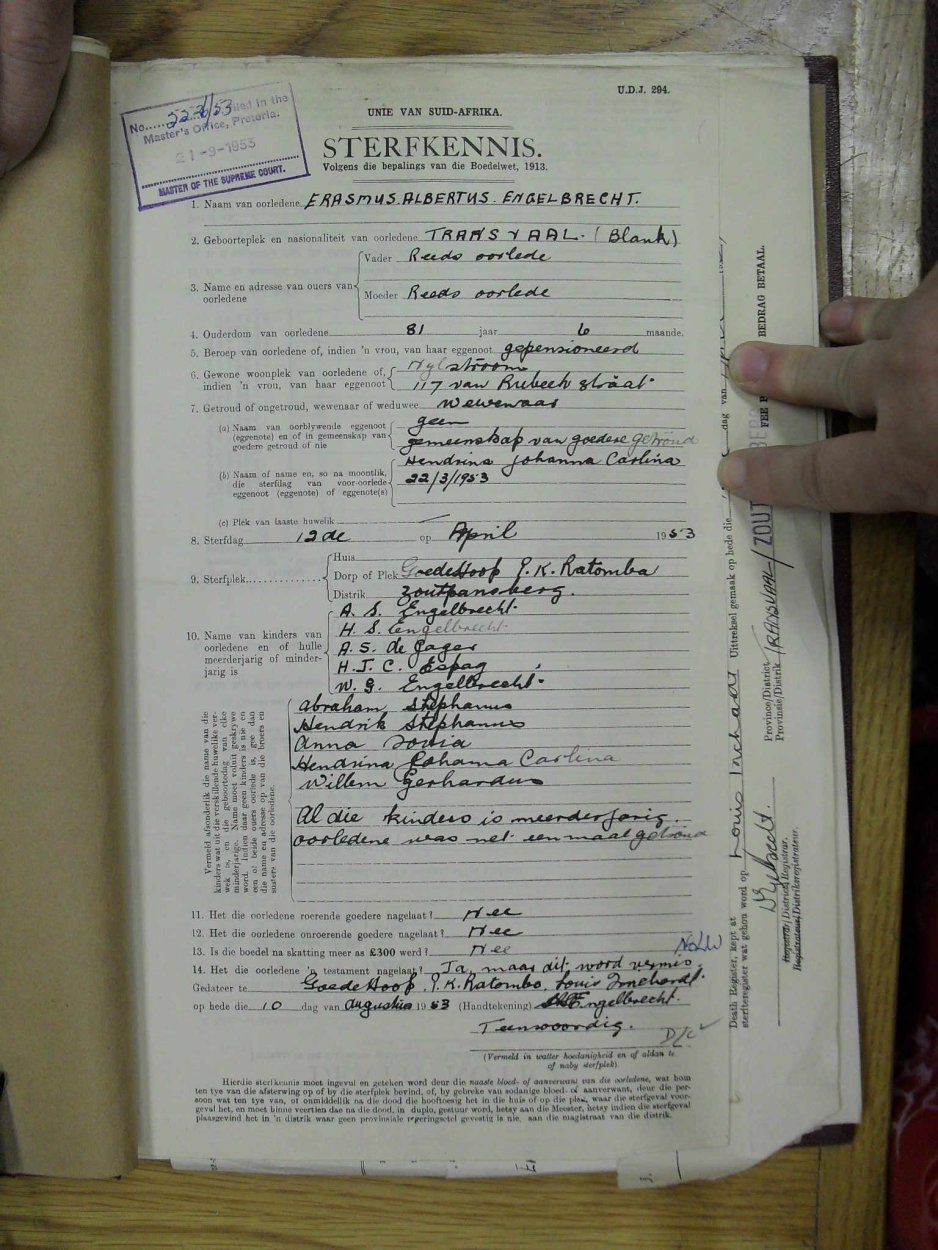 U.D.J. 294.
No...... 22 /53 filed in the
Master's Office, Pretoria.
21-9-1953
MASTER OF THE SUPREME COURT.
UNIE VAN SUID-AFRIKA.
STERFKENNIS.
Volgens die bepalings van die Boedelwet, 1913.
1. Naam van oorledene ERASMUS ALBERTUS ENGELBRECHT.
2. Geboorteplek en nasionaliteit van oorledene TRANSVAAL. (Blank)
3. Name en adresse van ouers van oorledene
Vader Reeds oorlede
Moeder Reeds oorlede
4. Ouderdom van oorledene 81 jaar 6 maande.
5. Beroep van oorledene of, indien 'n vrou, van haar eggenoot gepensioneerd
6. Gewone woonplek van oorledene of, Nylstroom
indien 'n vrou, van haar eggenoot 117 van Riebeek straat.
7. Getroud of ongetroud, wewenaar of weduwee wewenaar
(a) Naam van oorblywende eggenoot geen
(eggenote) en of in gemeenskap van
goedere getroud of nie gemeenskap van goedere getroud
(b) Naam of name en, so na moontlik, Hendrina Johanna Carlina
die sterfdag van voor-oorlede 22/3/1953
eggenoot (eggenote) of eggenote(s)
(c) Plek van laaste huwelik —
8. Sterfdag 12de op April 1953
9. Sterfplek............
Huis
Dorp of Plek Goedehoop P.K. Ratomba
Distrik Zoutpansberg.
10. Name van kinders van
oorledene en of hulle
meerderjarig of minder-
jarig is
A. S. Engelbrecht.
H. S. Engelbrecht.
A. S. de Jager
H. J. C. Espag
W. G. Engelbrecht.
Vermeld afsonderlik die name van die
kinders wat uit die verskillende huwelike ver-
wek is, en die geboortedag van elke
minderjarige. Name moet voluit geskrywe
word. Indien daar geen kinders is nie en
een of beide ouers oorlede is, gee dan
die name en adresse op van die broers en
susters van die oorledene.
Abraham Stephanus
Hendrik Stephanus
Anna Sovia
Hendrina Johanna Carlina
Willem Gerhardus
Al die kinders is meerderjarig.
oorledene was net eenmaal getroud
11. Het die oorledene roerende goedere nagelaat? Nee
12. Het die oorledene onroerende goedere nagelaat? Nee
13. Is die boedel na skatting meer as £300 werd? Nee
14. Het die oorledene 'n testament nagelaat? Ja, maar dit word vermis.
Gedateer te Goedehoop, P.K. Ratombo, Louis Trichardt.
op hede die 10 dag van Augustus 1953 (Handtekening) Engelbrecht.
Teenwoordig.
(Vermeld in watter hoedanigheid en of aldan te
of naby sterfplek).
Hierdie sterfkennis moet ingevul en geteken word deur die naaste bloed- of aanverwant van die oorledene, wat hom
ten tye van die afsterwing op of by die sterfplek bevind, of, by gebreke van sodanige bloed- of aanverwant, deur die per-
soon wat ten tye van, of onmiddellik na die dood die hooftoesig het in die huis of op die plaas, waar die sterfgeval voor-
geval het, en moet binne veertien dae na die dood, in duplo, gestuur word, hetsy aan die Meester, hetsy indien die sterfgeval
plaasgevind het in 'n distrik waar geen provinsiale registrasiestel gevestig is nie, aan die magistraat van die distrik.
Death Register, kept at
sterfteregister wat gehou word op Louis Trichardt Uittreksel gemaak op hede die dag van
Registrar/District Registrar.
Registrateur/Distriksregistrateur.
Province/District
Provinsie/Distrik TRANSVAAL/ZOUT
BEDRAG BETAAL.